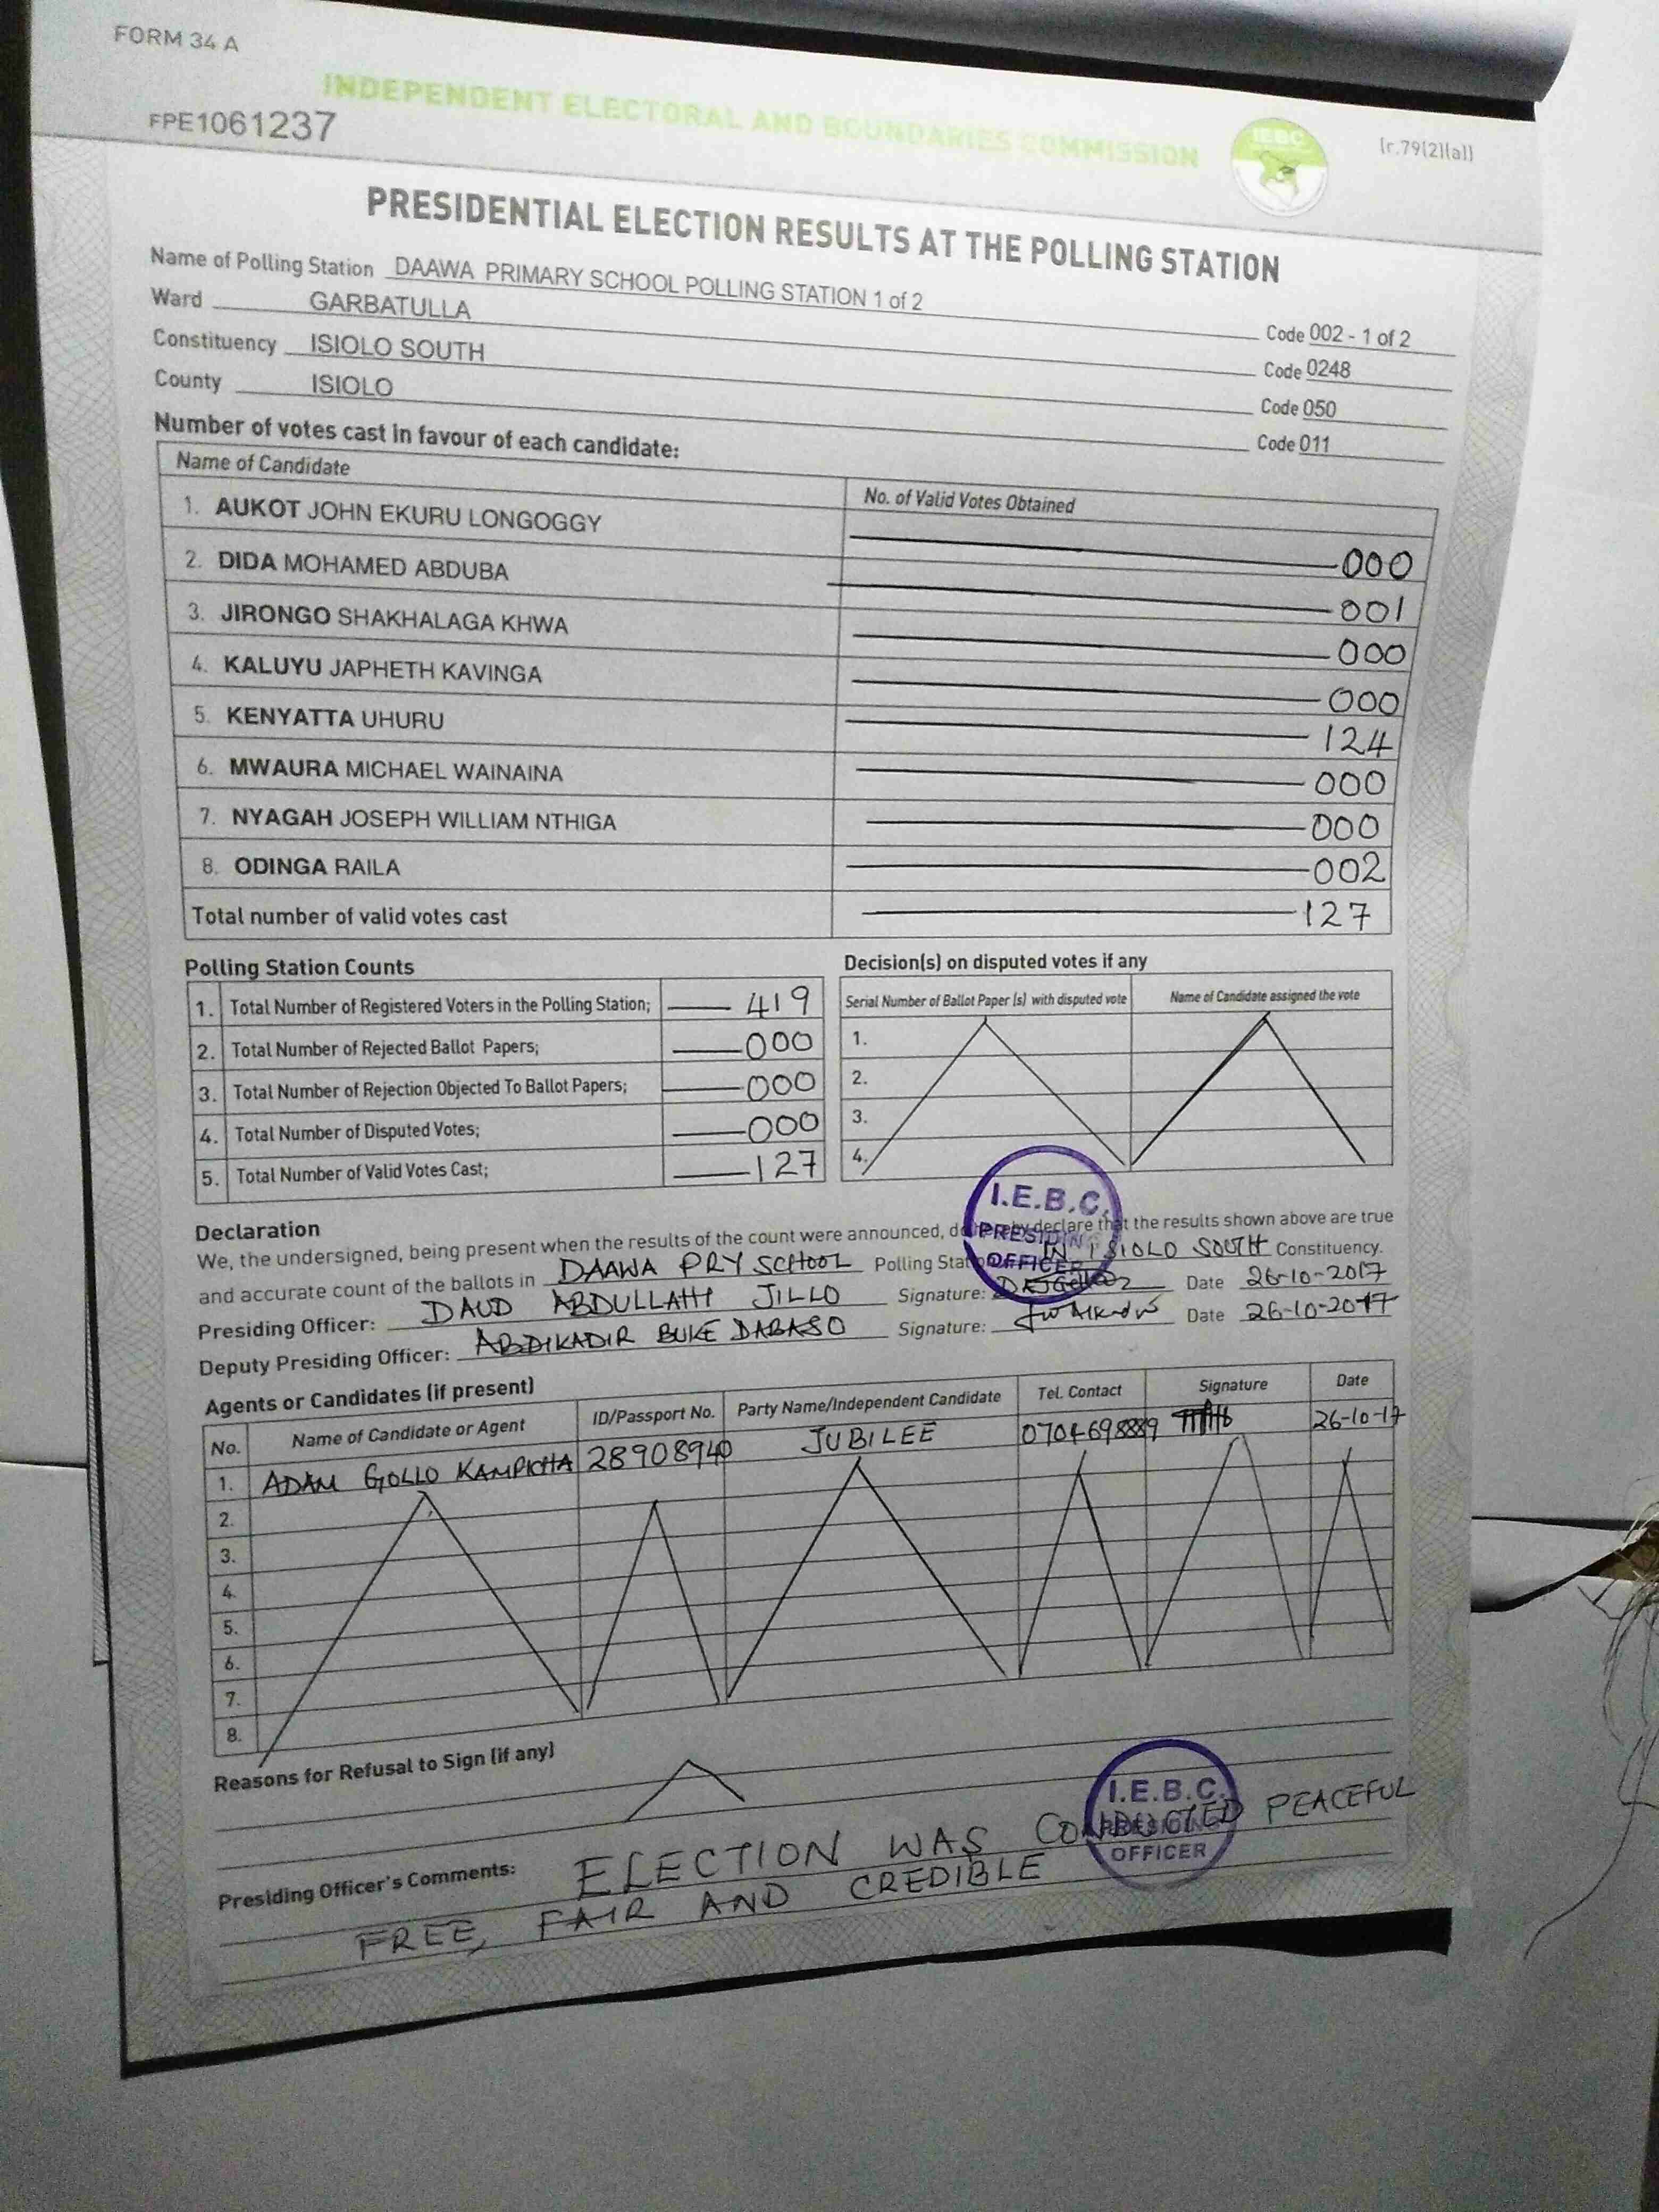 FORM 34 A
INDEPENDENT ELECTORAL AND BOUNDARIES COMMISSION
IEBC
[r.79(2)(a)]
FPE1061237
PRESIDENTIAL ELECTION RESULTS AT THE POLLING STATION
Name of Polling Station DAAWA PRIMARY SCHOOL POLLING STATION 1 of 2 Code 002 - 1 of 2
Ward GARBATULLA Code 0248
Constituency ISIOLO SOUTH Code 050
County ISIOLO Code 011
Number of votes cast in favour of each candidate:
Name of Candidate No. of Valid Votes Obtained
1. AUKOT JOHN EKURU LONGOGGY 000
2. DIDA MOHAMED ABDUBA 001
3. JIRONGO SHAKHALAGA KHWA 000
4. KALUYU JAPHETH KAVINGA 000
5. KENYATTA UHURU 124
6. MWAURA MICHAEL WAINAINA 000
7. NYAGAH JOSEPH WILLIAM NTHIGA 000
8. ODINGA RAILA 002
Total number of valid votes cast 127
Polling Station Counts
1. Total Number of Registered Voters in the Polling Station; 419
2. Total Number of Rejected Ballot Papers; 000
3. Total Number of Rejection Objected To Ballot Papers; 000
4. Total Number of Disputed Votes; 000
5. Total Number of Valid Votes Cast; 127
Decision(s) on disputed votes if any
Serial Number of Ballot Paper (s) with disputed vote Name of Candidate assigned the vote
1.
2.
3.
4.
I.E.B.C.
PRESIDING
OFFICER
Declaration
We, the undersigned, being present when the results of the count were announced, do hereby declare that the results shown above are true
and accurate count of the ballots in DAAWA PRY SCHOOL Polling Station IN ISIOLO SOUTH Constituency.
Presiding Officer: DAUD ABDULLAHI JILLO Signature: Date 26-10-2017
Deputy Presiding Officer: ABDIKADIR BUKE DABASO Signature: Date 26-10-2017
Agents or Candidates (if present)
No. Name of Candidate or Agent ID/Passport No. Party Name/Independent Candidate Tel. Contact Signature Date
1. ADAM GOLLO KAMPICHA 28908940 JUBILEE 0704698889 26-10-17
2.
3.
4.
5.
6.
7.
8.
Reasons for Refusal to Sign (if any)
I.E.B.C.
PRESIDING
OFFICER
Presiding Officer's Comments: ELECTION WAS CONDUCTED PEACEFUL
FREE, FAIR AND CREDIBLE